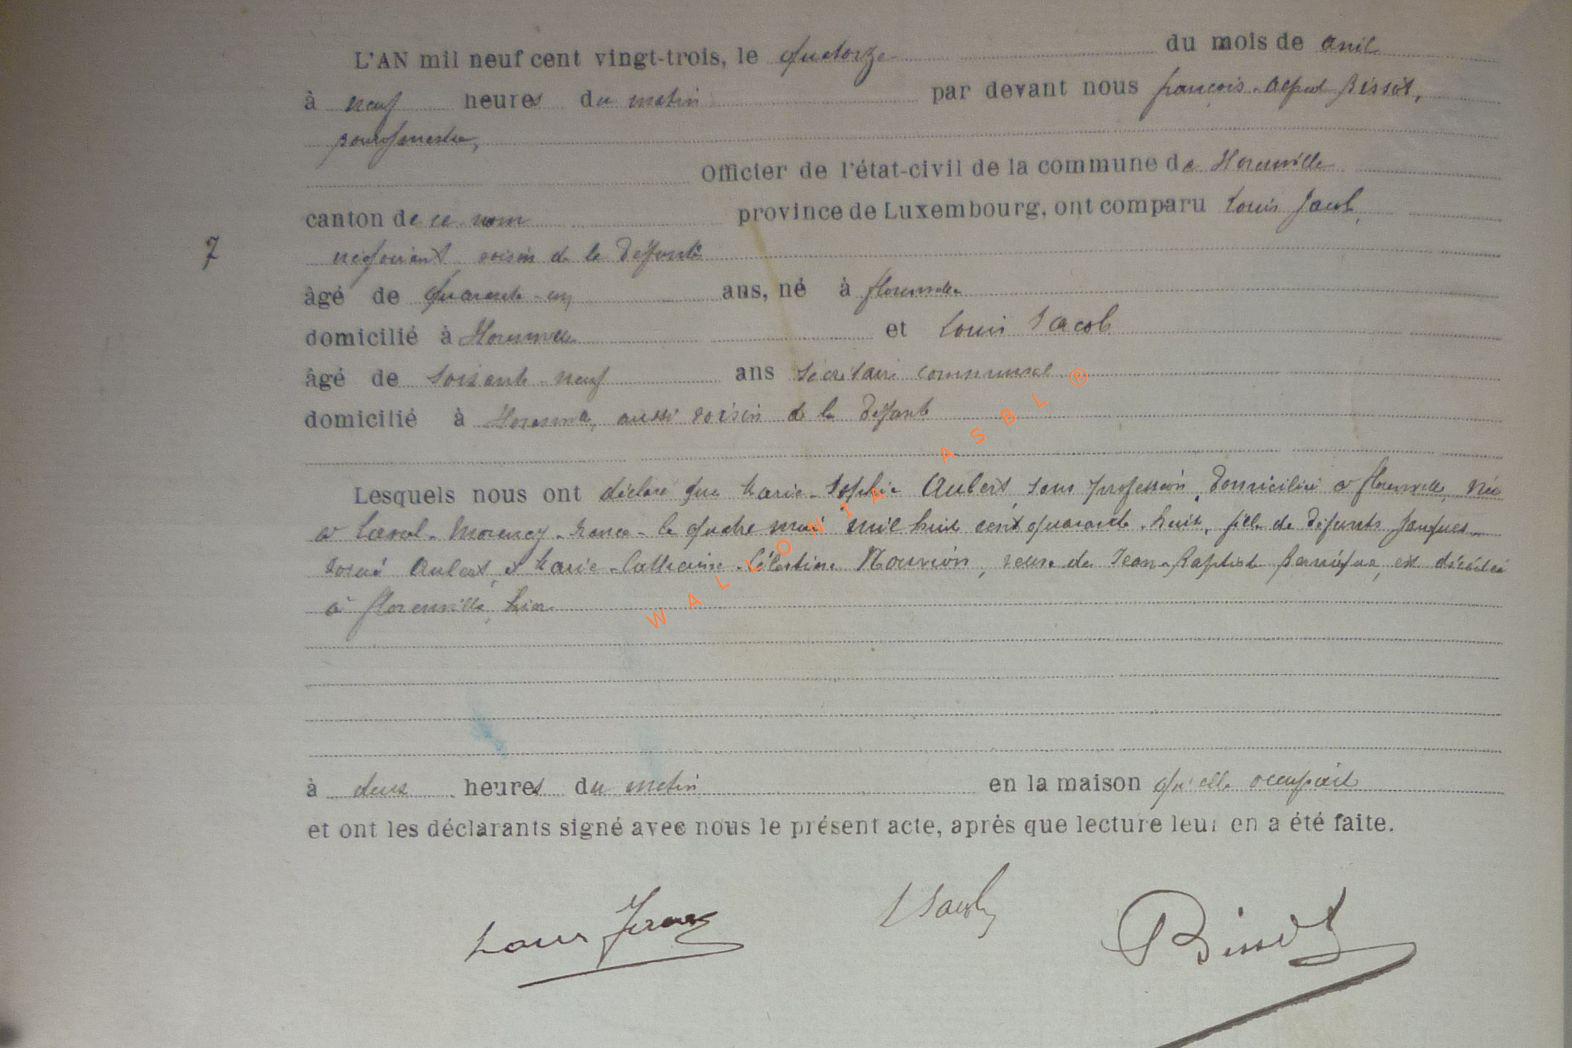 L'AN mil neuf cent vingt-trois, le quatorze du mois de avril
à neuf heures du matin par devant nous françois-Alfred Bissot,
bourgmestre,
Officier de l'état-civil de la commune de Florenville
canton de ce nom province de Luxembourg, ont comparu Louis
7 négociant voisin de la défunte
âgé de quarante-un ans, né à florenville
domicilié à Florenville et Louis Jacob
âgé de soixante-neuf ans secrétaire communal
domicilié à Florenville, aussi voisin de la défunte
Lesquels nous ont déclaré que Marie-Sophie Aubert, sans profession, domiciliée à florenville, née
à Laval-Morency-France-le quatre mai mil huit cent quarante-huit, fille de défunts Jacques
Aubert, et Marie-Catherine-Célestine Nouvion, veuve de Jean-Baptiste est décédée
à florenville, hier
à deux heures du matin en la maison qu'elle occupait
et ont les déclarants signé avec nous le présent acte, après que lecture leur en a été faite.
WALLONIA ASBL ®
Louis LJacob Bissot